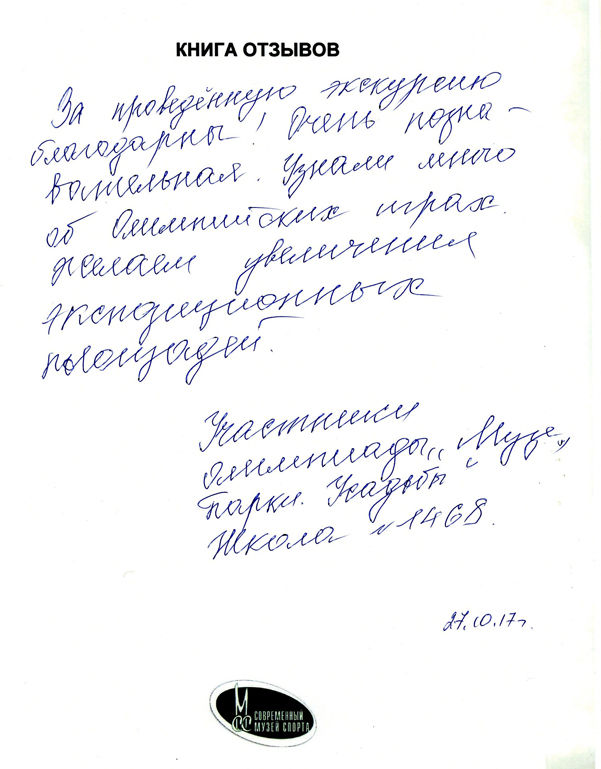 КНИГА ОТЗЫВОВ
За проведённую экскурсию
благодарны! Очень позна-
вательная. Узнали много
об Олимпийских играх.
Желаем увеличения
экспозиционных
площадей.
Участники
олимпиады „Музеи
Парки. Усадьбы"
Школа №1468.
27.10.17г.
М
СС СОВРЕМЕННЫЙ
МУЗЕЙ СПОРТА